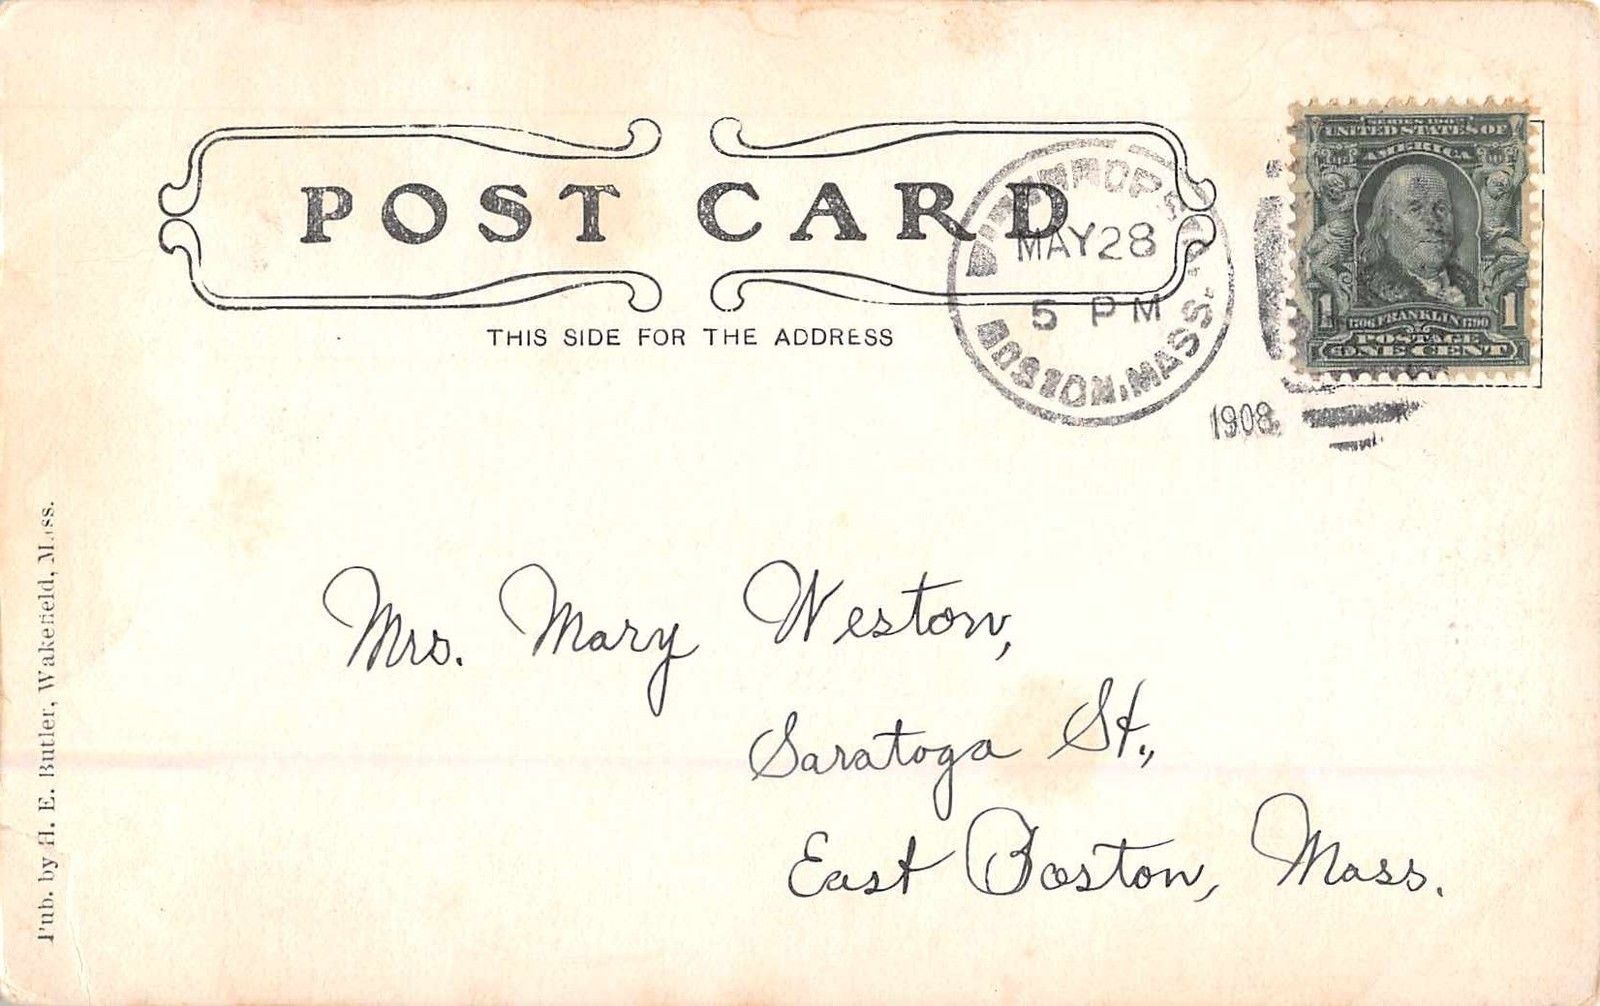 POST CARD
THIS SIDE FOR THE ADDRESS
MAY 28
5 PM
BOSTON, MASS.
1908
SERIES 1902
UNITED STATES OF
AMERICA
1 1
1706 FRANKLIN 1790
POSTAGE
ONE CENT
Mrs. Mary Weston,
Saratoga St.,
East Boston, Mass.
Pub. by H. E. Butler, Wakefield, Mass.